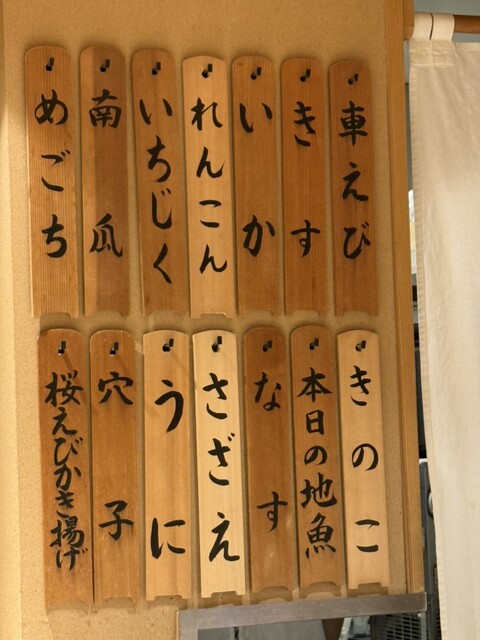 車えび
きす
いか
れんこん
いちじく
南瓜
めごち
きのこ
本日の地魚
なす
さざえ
うに
穴子
桜えびかき揚げ